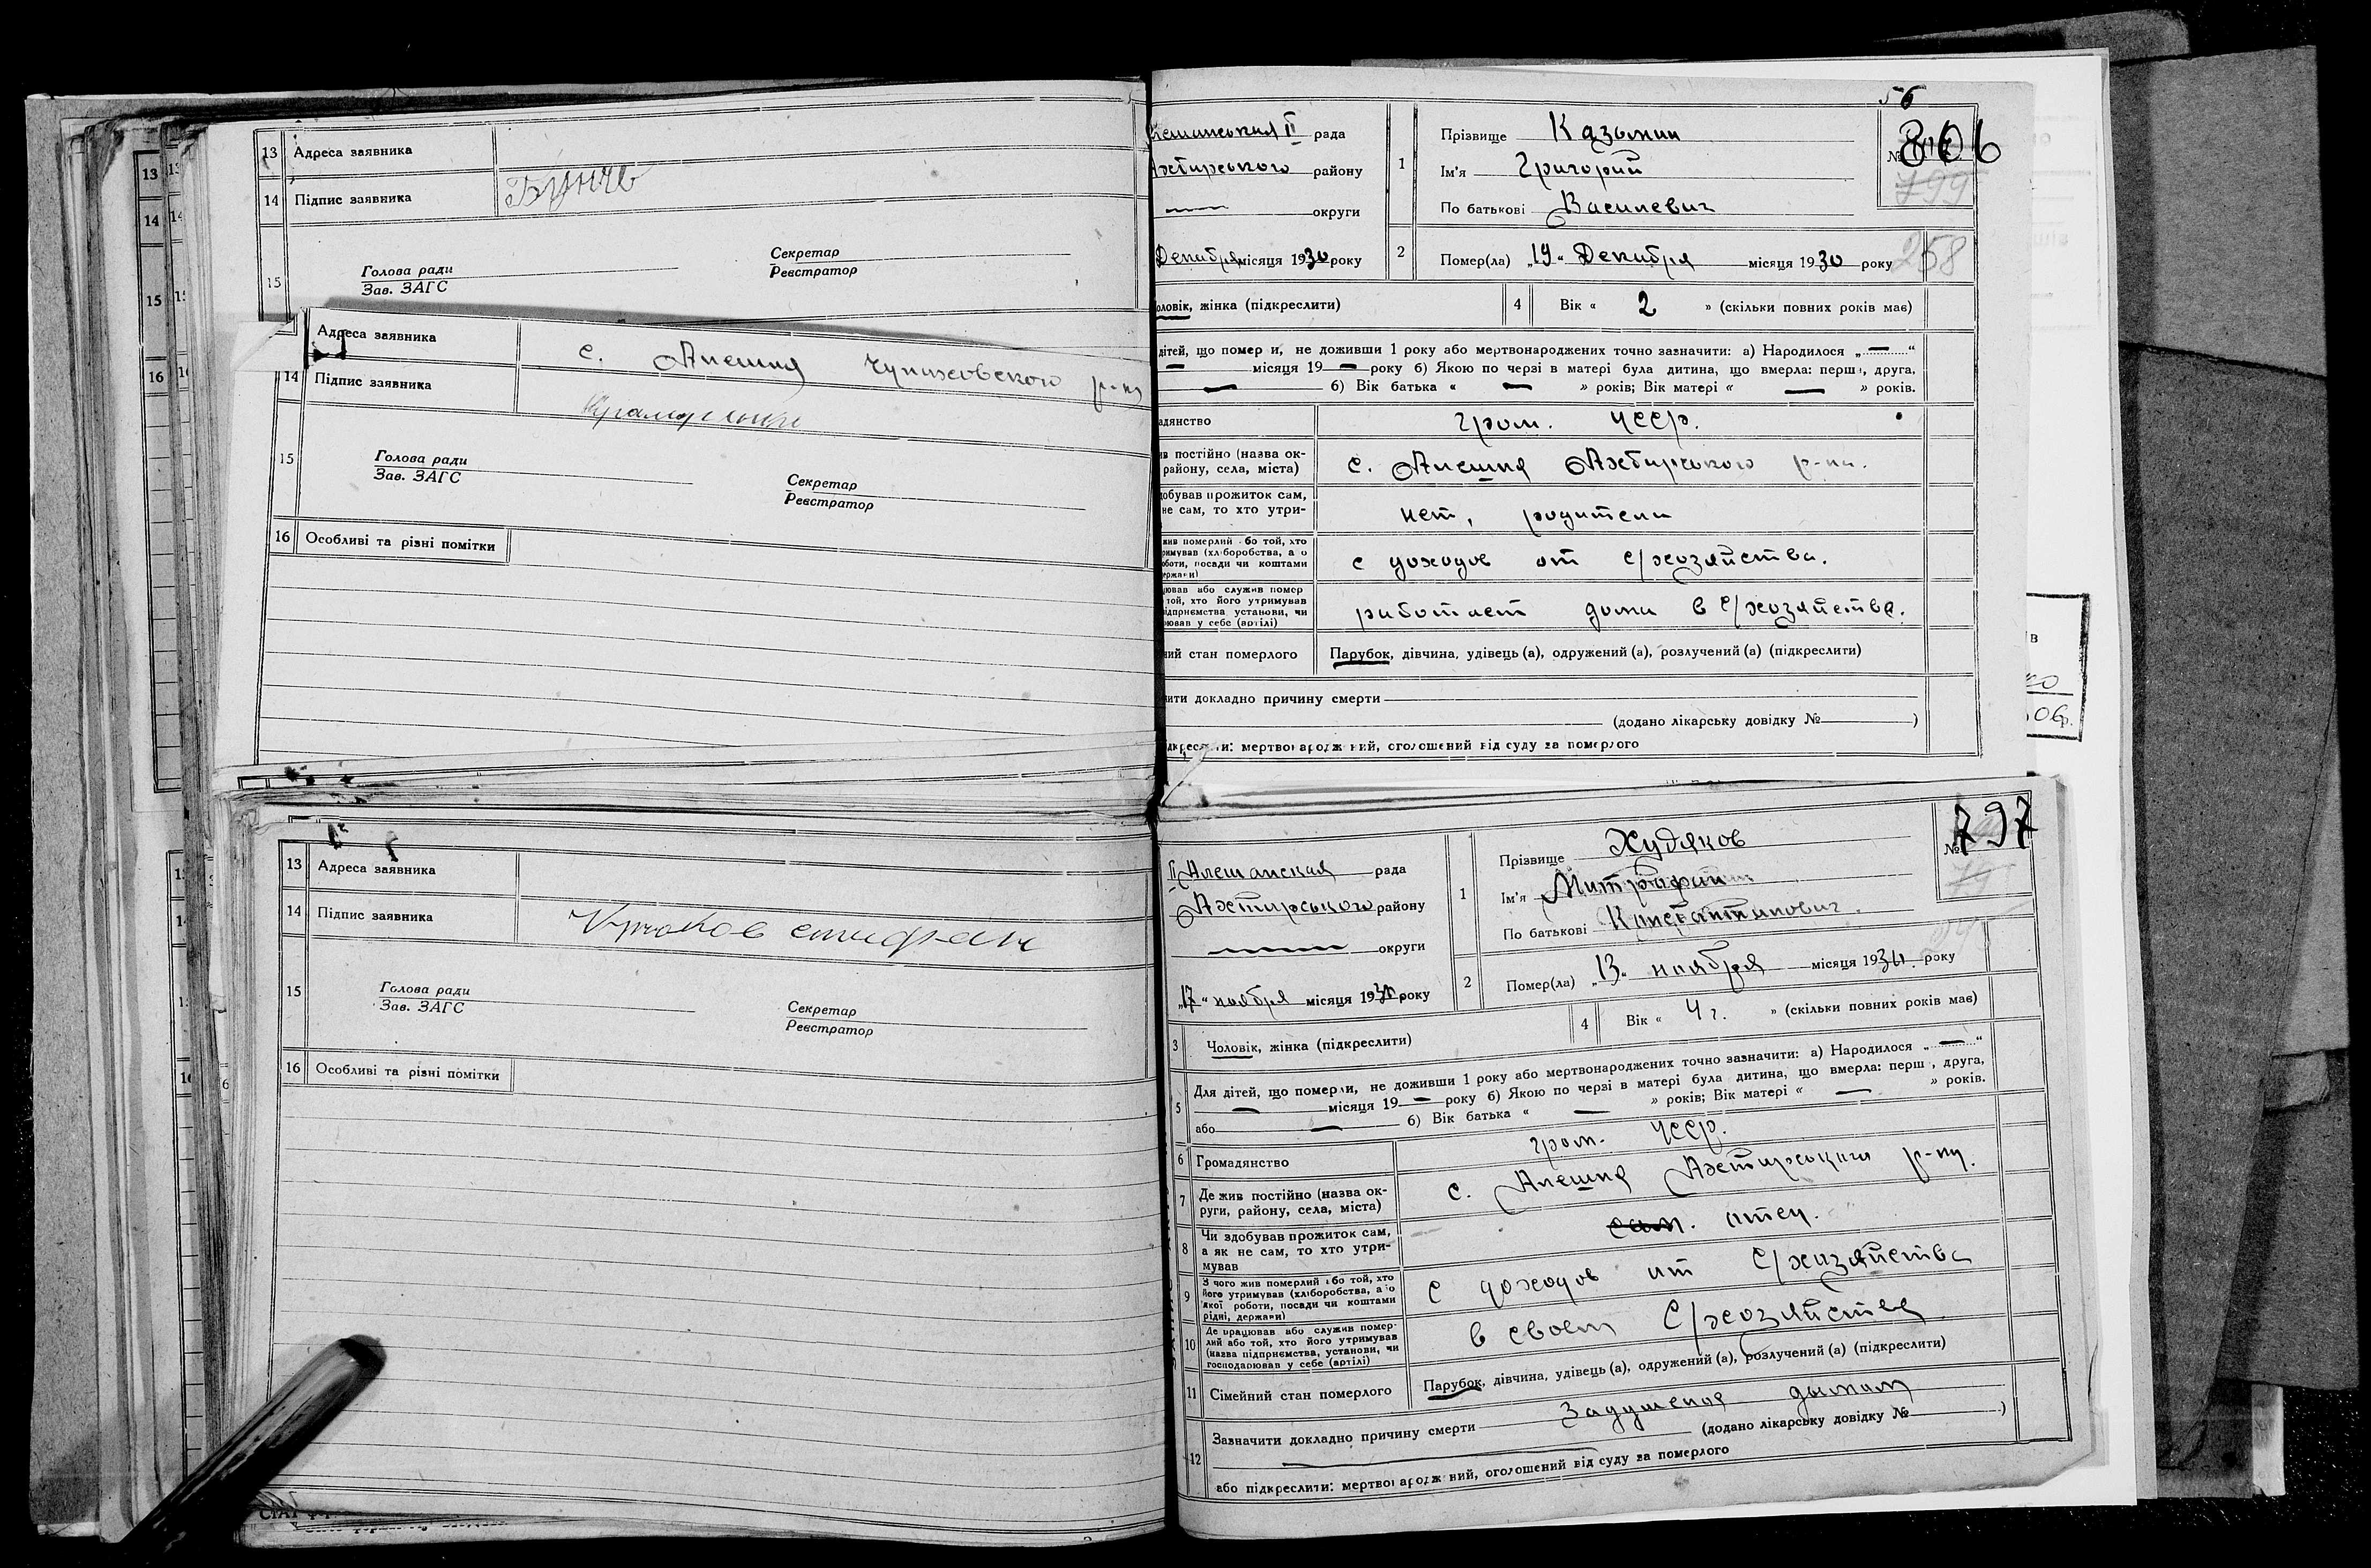 13 Адреса заявника
14 Підпис заявника
15 Голова ради
Зав. ЗАГС
Секретар
Реєстратор
Адреса заявника с. Алешня Чупаховского р-ну
14 Підпис заявника
15 Голова ради
Зав. ЗАГС
Секретар
Реєстратор
16 Особливі та різні помітки
13 Адреса заявника
14 Підпис заявника Крюков
15 Голова ради
Зав. ЗАГС
Секретар
Реєстратор
16 Особливі та різні помітки
56
806
799
258
рада
району
округи
Декабря місяця 1930 року
1 Прізвище Казьмин
Ім'я Григорий
По батькові Василевич
2 Помер(ла) „19“ Декабря місяця 1930 року
оловік, жінка (підкреслити)
4 Вік « 2 » (скільки повних років має)
дітей, що помер и, не доживши 1 року або мертвонароджених точно зазначити: а) Народилося „ — “
— місяця 19 — року б) Якою по черзі в матері була дитина, що вмерла: перш , друга,
— б) Вік батька « — » років; Вік матері « — » років.
адянство гром. УССР.
ив постійно (назва ок-
району, села, міста) с. Алешня Ахтирського р-ну.
добував прожиток сам,
не сам, то хто утри- нет, родители
жив померлий бо той, хто
римував (хліборобства, а о
оботи, посади чи коштами
ержави) с доходов от с/хозяйства.
ював або служив помер
той, хто його утримував
ідприємства установи, чи
ював у себе (артілі) работает дома в с/хозяйстве.
ний стан померлого Парубок, дівчина, удівець (а), одружений (а), розлучений (а) (підкреслити)
ити докладно причину смерти
(додано лікарську довідку № )
дкреслити: мертвонароджений, оголошений від суду за померлого
797
II Алешанская рада
Ахтирського району
округи
„17“ ноября місяця 1930 року
1 Прізвище Худяков
Ім'я Митрофан
По батькові Константинович.
2 Помер(ла) „13“ ноября місяця 1930 року
3 Чоловік, жінка (підкреслити)
4 Вік « 4 г. » (скільки повних років має)
5 Для дітей, що померли, не доживши 1 року або мертвонароджених точно зазначити: а) Народилося „ — “
— місяця 19 — року б) Якою по черзі в матері була дитина, що вмерла: перш , друга,
або — б) Вік батька « — » років; Вік матері « — » років.
6 Громадянство гром. УССР.
7 Де жив постійно (назва ок-
руги, району, села, міста) с. Алешня Ахтирського р-ну.
8 Чи здобував прожиток сам,
а як не сам, то хто утри-
мував сам. отец.
9 З чого жив померлий або той, хто
його утримував (хліборобства, а о
якої роботи, посади чи коштами
рідні, держави) с доходов от с/хозяйства
10 Де працював або служив помер-
лий або той, хто його утримував
(назва підприємства, установи, чи
господарював у себе (артілі) в своем с/хозяйстве
11 Сімейний стан померлого Парубок, дівчина, удівець (а), одружений (а), розлучений (а) (підкреслити)
12 Зазначити докладно причину смерти Задушення дымом
(додано лікарську довідку № )
або підкреслити: мертвонароджений, оголошений від суду за померлого